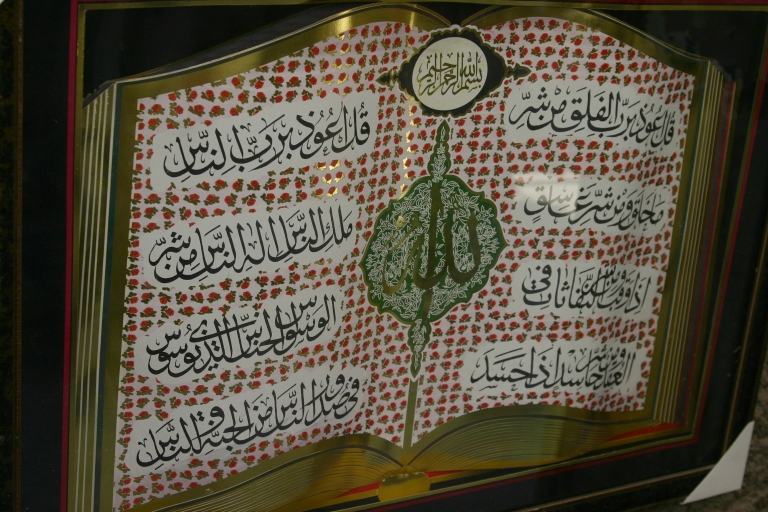 بسم الله الرحمن الرحيم
قل اعوذ برب الفلق من شر
ما خلق ومن شر غاسق
اذا وقب ومن شر النفاثات فى
العقد ومن شر حاسد اذا حسد
الله
قُل اَعُوذ بِرَبِّ النَّاسِ
مَلِكِ النَّاسِ اِلهِ النَّاسِ مِن شَرِّ
الوَسْوَاسِ الخَنَّاسِ الَّذِى يُوَسْوِسُ
فِى صُدُورِ النَّاسِ مِنَ الجِنَّةِ وَالنَّاسِ